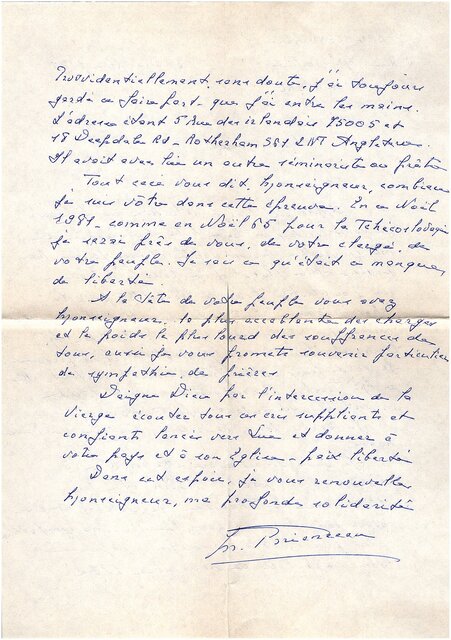 Providentiellement sans doute, j'ai toujours
gardé ce faire part - que j'ai entre les mains.
L'adresse étant 5 Rue des irlandais 75005 et
18 Deepdale Rd - Rotherham S61 2NT Angleterre.
Il avait avec lui un autre séminariste ou prêtre
Tout ceci vous dit, Monseigneur, combien
je suis vôtre dans cette épreuve. En ce Noël
1981 - comme en Noël 65 pour la Tchécoslovaquie
je serai près de vous, de votre clergé, de
votre peuple. Je sais ce qu'était ce manque
de liberté.
A la tête de votre peuple vous avez
Monseigneur, la plus accablante des charges
et le poids le plus lourd des souffrances de
tous, aussi je vous promets souvenir particulier
de sympathie de prières
Daigne Dieu par l'intercession de la
Vierge écouter tous ces cris suppliants et
confiants lancés vers Lui et donner à
votre pays et à son Eglise - paix liberté
Dans cet espoir, je vous renouvelle,
Monseigneur, ma profonde solidarité